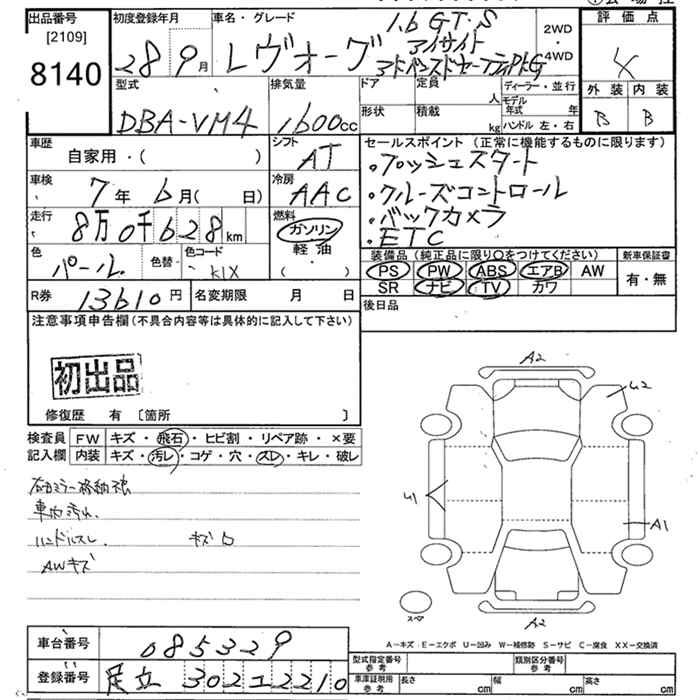 出品番号
[2109]
8140
初度登録年月
28 9月
車名・グレード
レヴォーグ
1.6 GT-S
アイサイト
2WD
・
4WD
評価点
4
外装 内装
B B
型式
DBA-VM4
排気量
1600cc
ドア
定員
人
形状
積載
kg
ディーラー・並行
モデル年式 年
ハンドル 左・右
車歴
自家用・( )
シフト
AT
車検
7年 6月( 日)
冷房
AAC
走行
8万0千628km
燃料
ガソリン
軽油
・( )
色
パール
色替
色コード
K1X
R券
13610円
名変期限 月 日
セールスポイント(正常に機能するものに限ります)
・プッシュスタート
・クルーズコントロール
・バックカメラ
・ETC
装備品(純正品に限り○をつけてください)
PS PW ABS エアB AW
SR ナビ TV カワ
新車保証書
有・無
後日品
注意事項申告欄(不具合内容等は具体的に記入して下さい)
初出品
修復歴 有 〔箇所 〕
検査員
記入欄
FW キズ・飛石・ヒビ割・リペア跡・×要
内装 キズ・汚レ・コゲ・穴・スレ・キレ・破レ
車内汚れ
ハンドルスレ キズ
AWキズ
A2
U2
U1
A1
A2
スペア
A-キズ E-エクボ U-凹み W-補修跡 S-サビ C-腐食 XX-交換済
車台番号
085329
登録番号
足立 302 2210
型式指定番号
参考
類別区分番号
参考
車庫証明用
参考
長さ cm
幅 cm
高さ cm